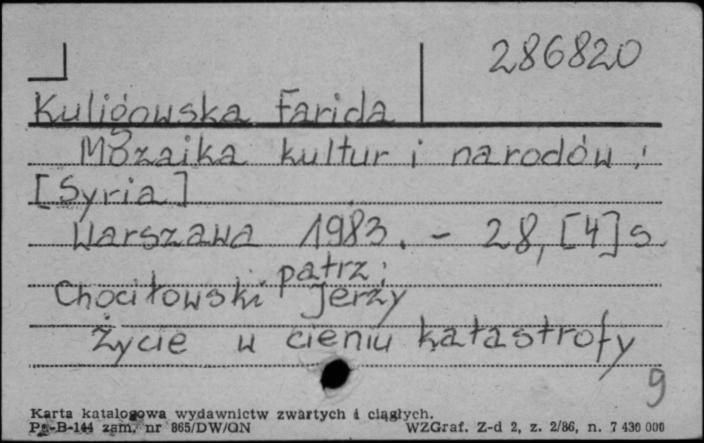 286820
Kuligowska Farida
Mozaika kultur i narodów :
[Syria]
Warszawa 1983. - 28, [4] s
patrz:
Chociłowski Jerzy
Życie w cieniu katastrofy
9
Karta katalogowa wydawnictw zwartych i ciągłych.
Pu-B-144 zam. nr 865/DW/ON WZGraf. Z-d 2, z. 2/86, n. 7 430 000